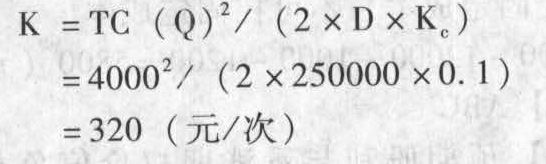 K = TC（Q）²/（2×D×K꜀）
=4000²/（2×250000×0.1）
=320（元/次）